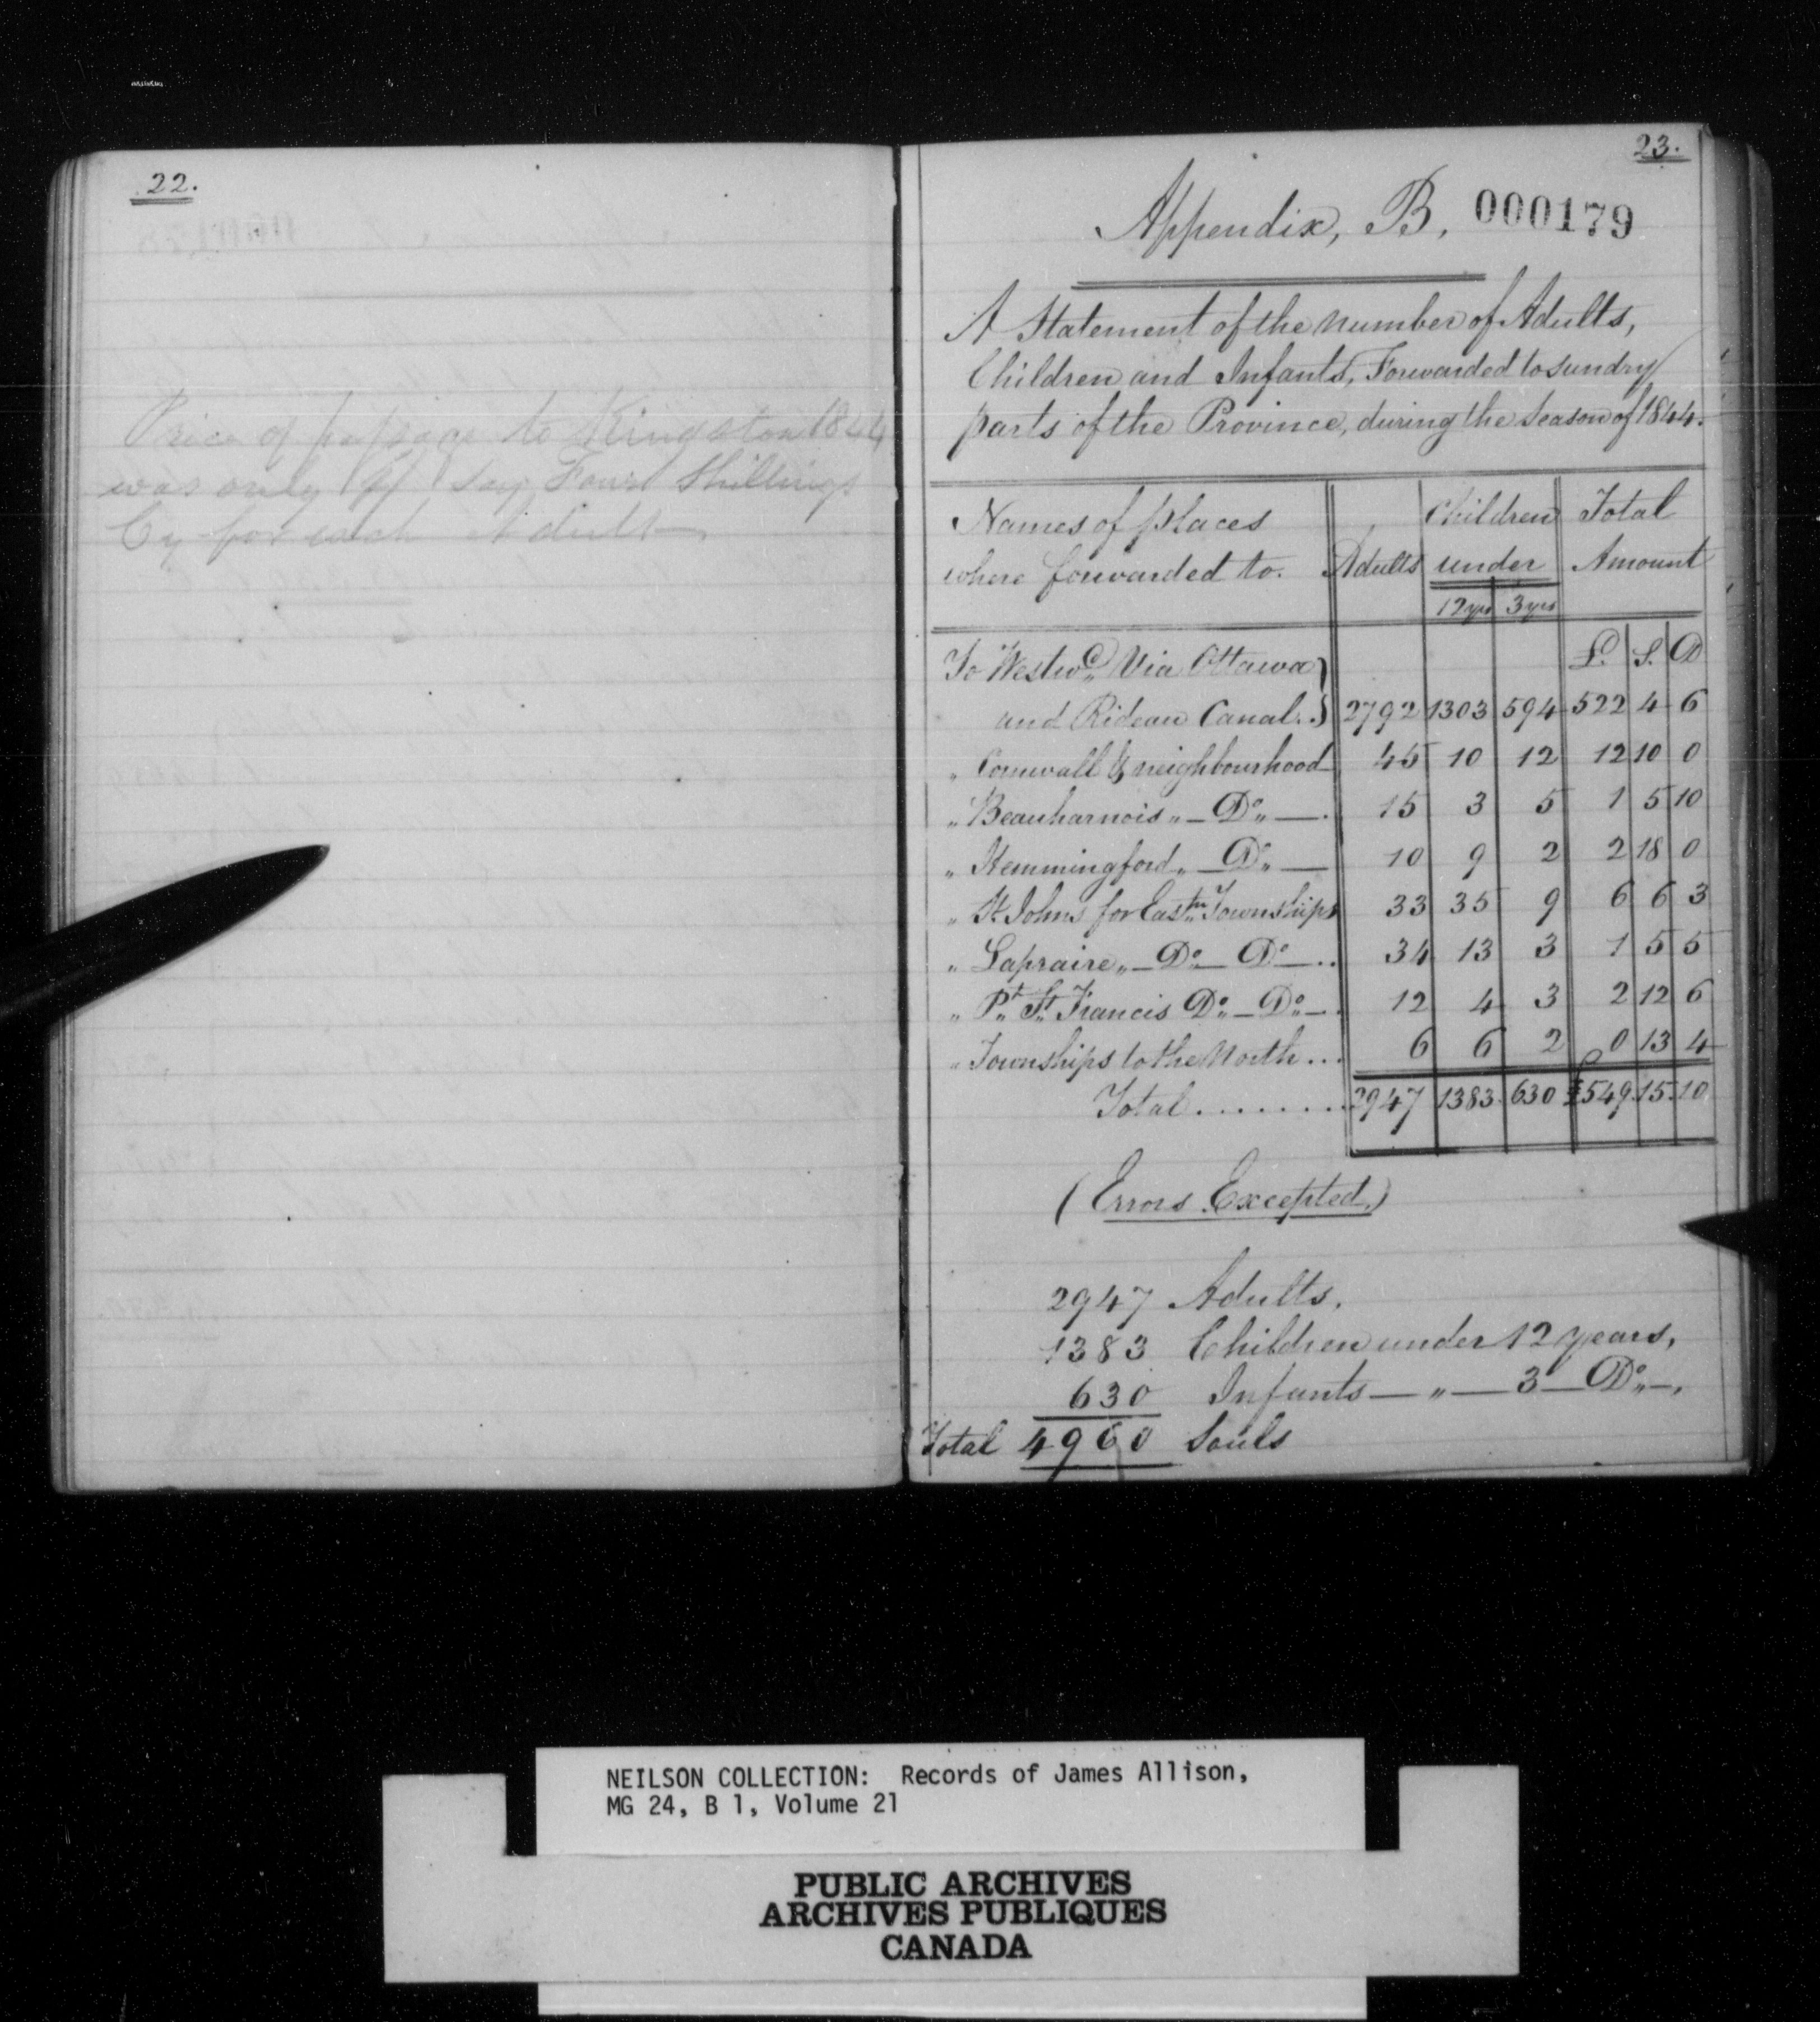 22.
Price of passage to Kingston 1844
was only 4/ say Four Shillings
Cy for each Adult
23.
Appendix, B, 000179
A Statement of the number of Adults,
Children and Infants, Forwarded to sundry
parts of the Province, during the Season of 1844.
Names of places where forwarded to. Adults Children under 12 yrs 3 yrs Total Amount
£. S. D
To Westwd. Via Ottawa
and Rideau Canal.. 2792 1303 594 522 4 6
" Cornwall & neighbourhood 45 10 12 12 10 0
" Beauharnois " — Do " — . 15 3 5 1 5 10
" Hemmingford " — Do " — 10 9 2 2 18 0
" St Johns for Eastn Townships 33 35 9 6 6 3
" Lapraire " — Do — Do — .. 34 13 3 1 5 5
" Pt St Francis Do — Do — . 12 4 3 2 12 6
" Townships to the North ... 6 6 2 0 13 4
Total ........ 2947 1383 630 £549. 15. 10
(Errors Excepted)
2947 Adults,
1383 Children under 12 years,
630 Infants — " — 3 — Do " — ,
Total 4960 Souls
NEILSON COLLECTION: Records of James Allison,
MG 24, B 1, Volume 21
PUBLIC ARCHIVES
ARCHIVES PUBLIQUES
CANADA